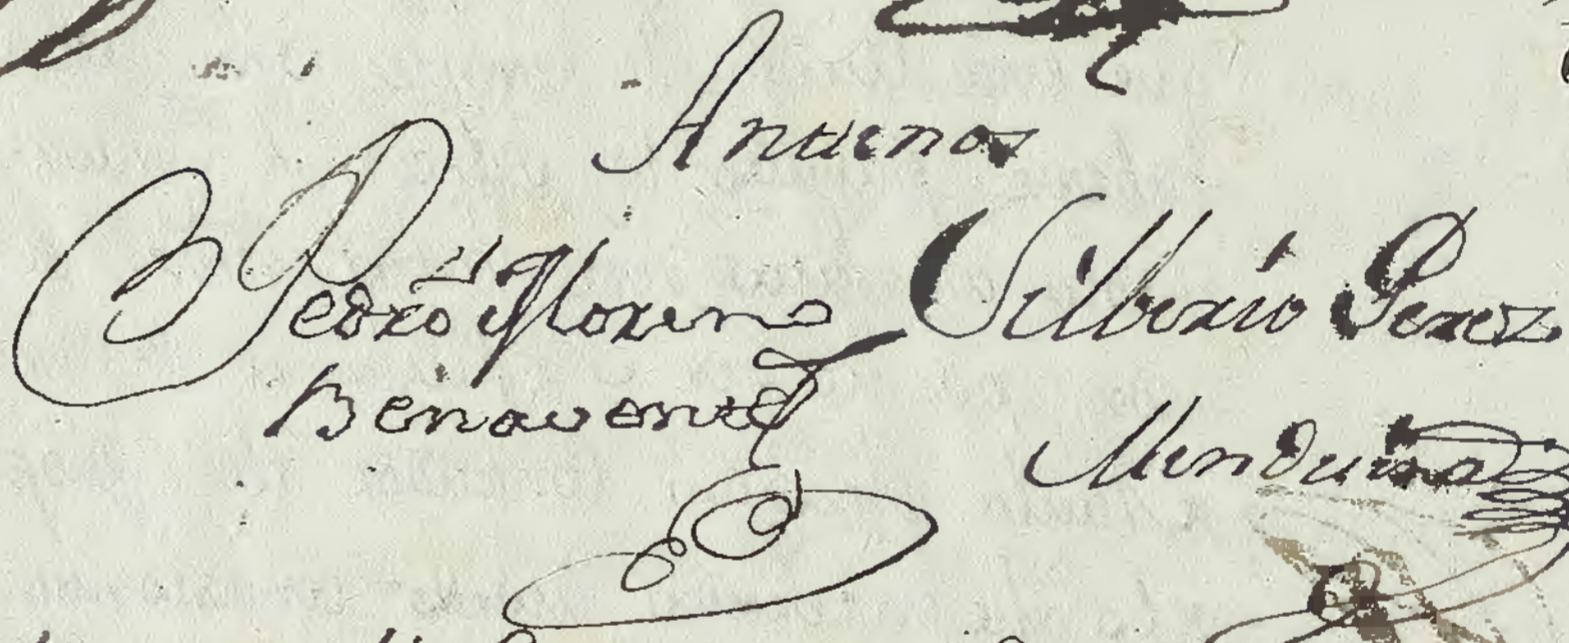 Antienos
Pedro Moreno
Benavente
Silberio Perez
Menduina